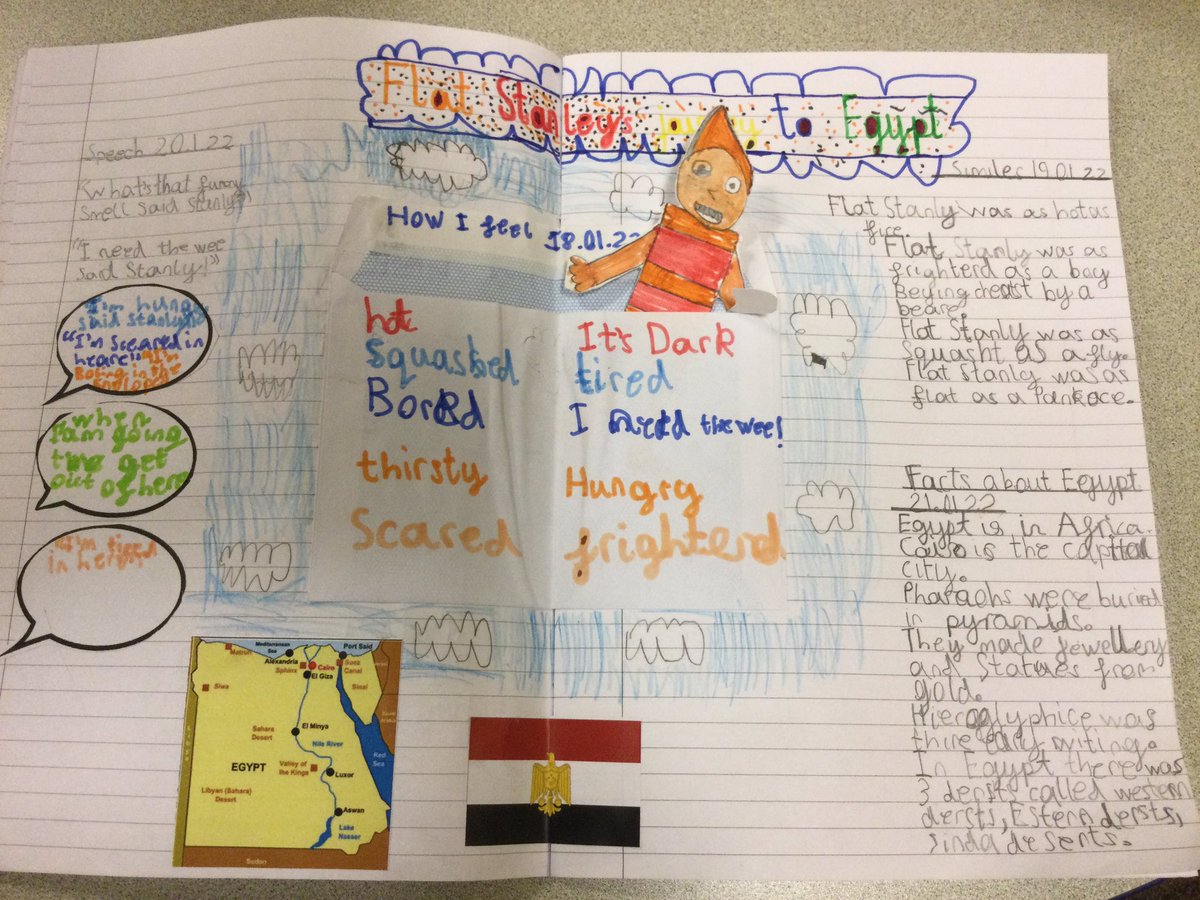 Flat Stanley's journey to Egypt
Speech 20.1.22
"What's that funny
smell said Stanly"
"I need the wee
said Stanly!"
I'm hungry
said stanly
"I'm sceared in
heare"
in the
when
I am going
get
out of here
I'm tired
in here
How I feel 18.01.22
hot
Squashed
Bored
thirsty
Scared
It's Dark
tired
I need the wee!
Hungry
frighterd
Similes 19.01.22
Flat Stanly was as hot as
fire.
Flat Stanly was as
frighterd as a boy
Beying by a
beare.
Flat Stanly was as
squasht as a fly.
Flat Stanly was as
flat as a Pankace.
Facts about Egypt
21.01.22
Egypt is in Africa.
Cairo is the capital
city.
Pharaohs were buried
in pyramids.
They made jewellery
and statues from
gold.
Hieroglyphice was
thire writing.
In Egypt there was
3 dersts called western
dersts, Estern dersts,
sinda deserts.
Mediterranean
Sea
Port Said
Matruh
Alexandria
Sphinx
Cairo
El Giza
Suez
Canal
Sinai
Siwa
El Minya
Sahara
Desert
Nile River
Red
Sea
EGYPT
Valley of
the Kings
Luxor
Libyan (Sahara)
Desert
Aswan
Lake
Nasser
Sudan